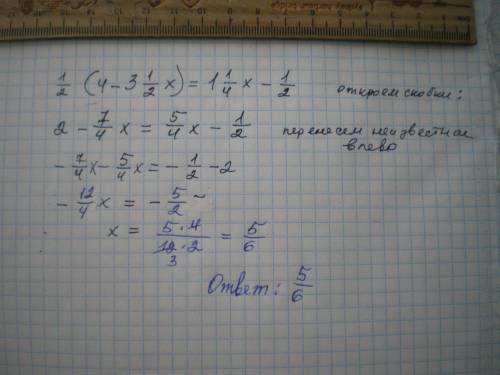 1/2 (4 - 3 1/2 x) = 1 1/4 x - 1/2 откроем скобки:
2 - 7/4 x = 5/4 x - 1/2 перенесем неизвестное влево
- 7/4 x - 5/4 x = - 1/2 - 2
- 12/4 x = - 5/2
x = 5·4/12·2 = 5/6
3
Ответ: 5/6